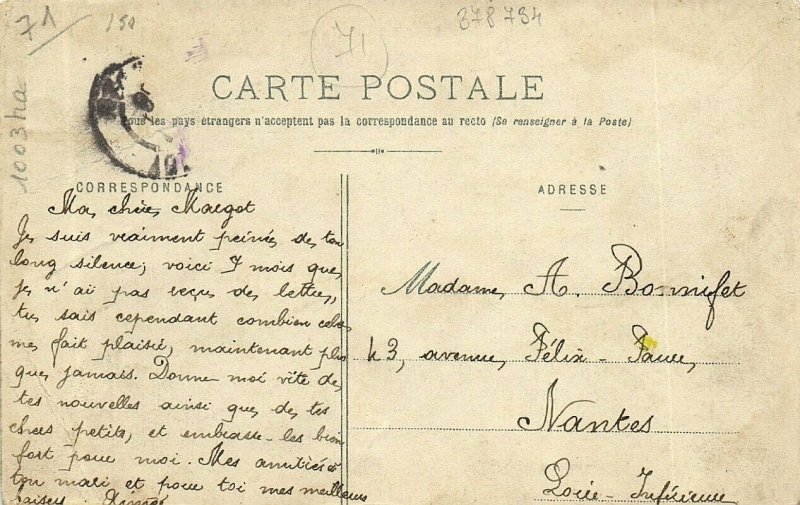 71
150
71
878734
1003ha
CARTE POSTALE
Tous les pays étrangers n'acceptent pas la correspondance au recto (Se renseigner à la Poste)
CORRESPONDANCE
Ma chère Margot
Je suis vraiment peinée de ton
long silence; voici 7 mois que
je n'ai pas reçu de lettre,
tu sais cependant combien cela
me fait plaisir, maintenant plus
que jamais. Donne moi vite de
tes nouvelles ainsi que de tes
chers petits, et embrasse-les bien
fort pour moi. Mes amitiés à
ton mari et pour toi mes meilleurs
baisers.
ADRESSE
Madame A. Bonnifet
43, avenue Félix-Faure
Nantes
Loire-Inférieure